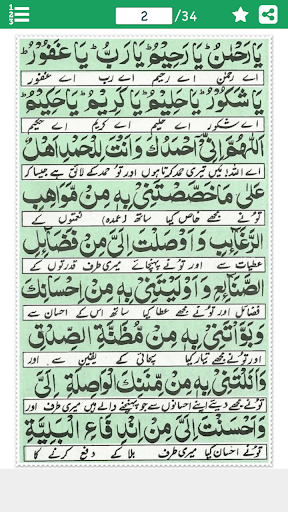 2 /34
یَارَحْمٰنُ یَارَحِیْمُ یَارَبُّ یَاغَفُوْرُ
اے رحمٰن اے رحیم اے رب اے غفور
یَاشَکُوْرُ یَاحَلِیْمُ یَاکَرِیْمُ یَاحَکِیْمُ
اے شکور اے حلیم اے کریم اے حکیم
اَللّٰهُمَّ اِنِّیْ اَحْمَدُكَ وَاَنْتَ لِلْحَمْدِ اَهْلٌ
اے اللہ! میں تیری حمد کرتا ہوں اور تو حمد کے لائق ہے جیسا کہ
عَلٰی مَا خَصَّصْتَنِیْ بِهٖ مِنْ مَوَاهِبِ
تو نے مجھے خاص کیا ساتھ (عمدہ) نعمتوں کے
الرَّغَآئِبِ وَ اَوْصَلْتَ اِلَیَّ مِنْ فَضَآئِلِ
عطیات سے اور تو نے پہنچائے میری طرف قدرتوں کے
الصَّنَآئِعِ وَ اَوْلَیْتَنِیْ بِهٖ مِنْ اِحْسَانِكَ
فضائل اور تو نے مجھے عطا کیا ساتھ اس کے احسان سے
وَبَوَّأْتَنِیْ بِهٖ مِنْ مَظَنَّةِ الصِّدْقِ
اور تو نے مجھے تیار کیا سچائی کے یقین سے اور
وَاَنَلْتَنِیْ بِهٖ مِنْ مِنَنِكَ الْوَاصِلَةِ اِلَیَّ
تو نے مجھے دیئے اپنے احسانوں سے جو پہنچنے والے ہیں میری طرف اور
وَاَحْسَنْتَ اِلَیَّ مِنْ اِنْدِفَاعِ الْبَلِیَّةِ
تو نے احسان کیا میری طرف بلا کے دفع کرنے کا